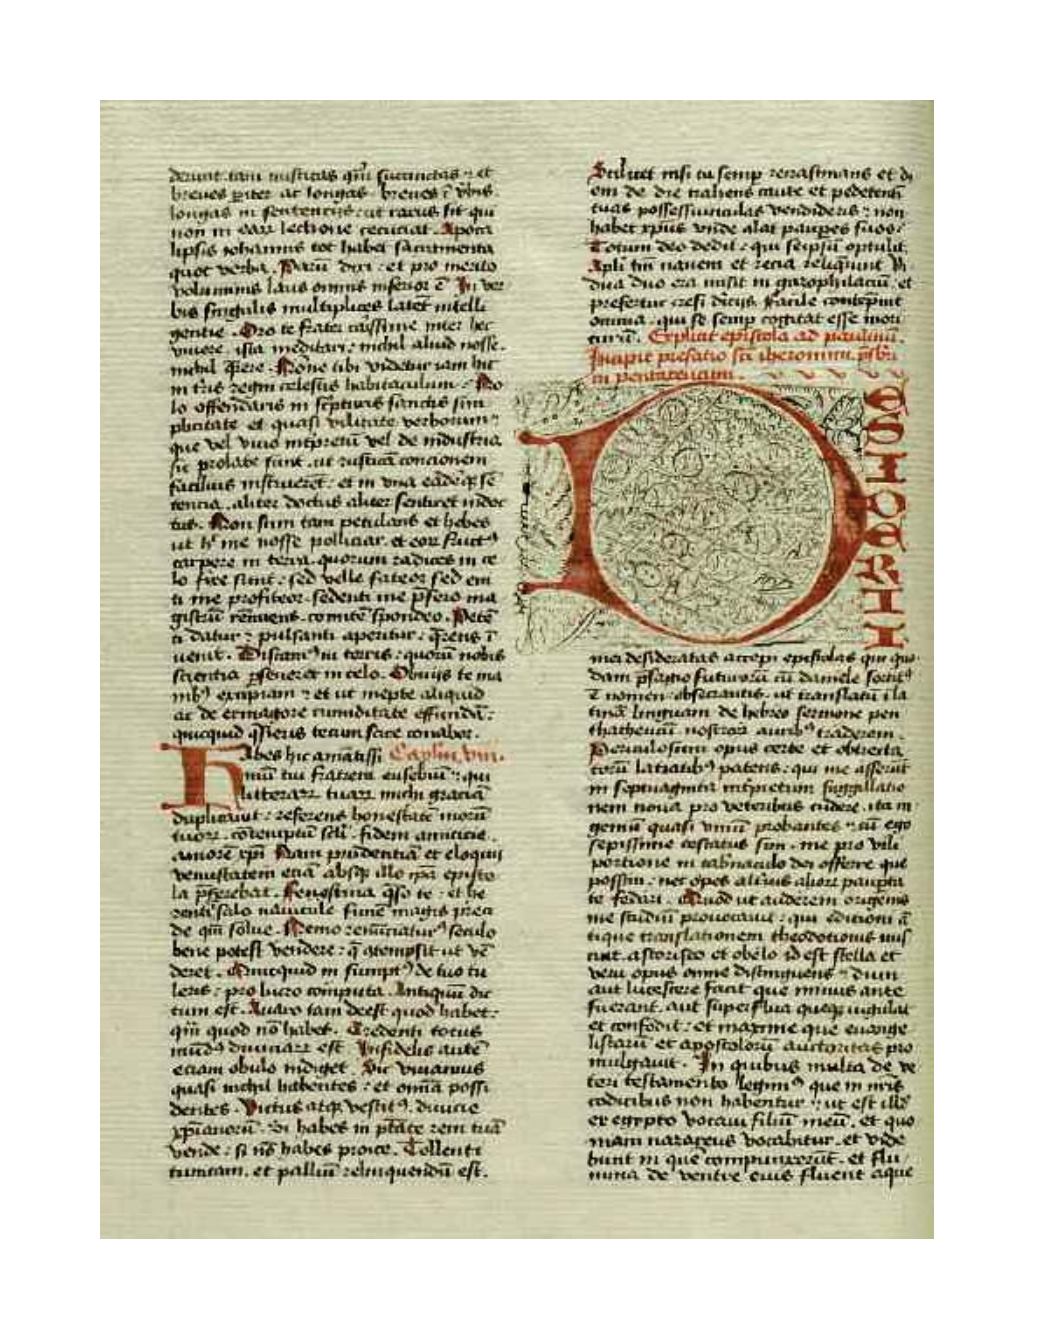 derunt tam misticas qm̄ succinctas et
breues p̱iter ac longas breues ī vb̄is
longas in sententijs ut rarus sit qui
non in eaꝝ lectione cecuciat. Apoca
lipsis iohannis tot habet sacramenta
quot verba. Parū dixi et pro merito
voluminis laus omnis inferior ē In ver
bis singulis multiplices latēt intelli
gentie. Oro te frater caissime inter hec
viuere. ista meditari: nichil aliud nosse.
nichil q̄rere. Nōne tibi videtur iam hic
in tr̄is regni celestis habitaculum. No
lo offendaris in scptuiis sanctis sim
plicitate et quasi vilitate verborum
que vel vicio intp̄retū vel de industria
sic prolate sunt. ut rusticā concionem
facilius instruerēt: et in vna eadēq̄ sē
tencia. aliter doctus aliter sentiret indoc
tus. Non sum tam petulans et hebes
ut h̄ me nosse polliciar. et eoꝝ fruct⁹
carpere in terra. quorum radices in ce
lo fixe sunt: sed velle fateor sed eni
ti me profiteor. sedenti me p̄fero ma
gistrū rēnuens. comitē spondeo. Petē
ti datur: pulsanti aperitur: q̄rens ī
uenit. Discam⁹ in terris: quorū nobis
scientia p̱seueret in celo. Obuijs te ma
nib⁹ excipiam: et ut inepte aliquid
ac de ermagore tumiditate effundā:
quicquid q̄sieris tecum scire conabor.
Habes hic amātissi Capl̄m. viii.
mū tui fratrem eusebiū: qui
litteraꝝ tuaꝝ michi graciā
duplicauit: referens honestatē morū
tuoꝝ. cōtemptū scl̄i. fidem amicicie.
amorē xp̄i Nam prudentiā et eloquij
venustatem eciā absq̱ illo ip̄a episto
la p̄ferebat. Festina q̄so te: et he
renti salo nauicule funē magis preci
de qm̄ solue. Nemo renūciatur⁹ seculo
bene potest vendere: q̄ atempsit ut vē
deret. Quicquid in sumpt⁹ de tuo tu
leris: pro lucro cōmputa. Antiquū dic
tum est. Auaro tam deest quod habet:
qm̄ quod nō habet. Credenti totus
mūd⁹ diuiciaꝝ est. Infidelis autē
eciam obulo indiget. Sic viuamus
quasi nichil habentes: et om̄ia possi
dentes. Victus atq̱ vestit⁹. diuicie
xp̄ianorū. Si habes in p̄tāte rem tuā
vende: si nō habes proice. Tollenti
tunicam. et palliū relinquendū est.
Scilicet nisi tu semp̱ recrastinans et di
em de die trahens caute et pedetenti
tuas possessiunculas vendideris: non
habet xp̄us vnde alat paup̱es suos:
Totum deo dedit: qui seipsū optulit.
Apl̄i tm̄ nauem et recia reliq̄runt Vi
dua duo era misit in gazophilaciū. et
prefertur cresi diicijs. Facile contēpnit
omnia. qui se semp̱ cogitat esse mori
turū. Explicit epistola ad paulinū.
Incipit prefatio sc̄i iheronimi p̄sb̄ri
in pentateucum.
DESIDERII
mei desideratas accepi epistolas qui quo
dam p̄sagio futurorū cū daniele sortit⁹
ē nomen: obsecrantis. ut translatū ī la
tinā linguam de hebreo sermone pen
thateucū nostroꝝ aurib⁹ traderem.
Periculosum opus certe et obtrecta
torū latratib⁹ patens: qui me asserūt
in septuaginta intp̄retum suggillatio
nem noua pro veteribus cudere. ita in
geniū quasi vinū probantes: cū ego
sepissime testatus sim. me pro virili
portione in tab̄naculo dei offerre que
possim: nec opes alt̄ius alioꝝ paup̱ta
te fedari. Quod ut auderem origenis
me studiū prouocauit: qui editioni ā
tique translationem theodotionis mis
cuit. astorisco et obelo id est stella et
veru opus omne distinguens: dum
aut lucescere facit que minus ante
fuerant. aut superflua queq̱ iugulat
et confodit: et maxime que euange
listarū et apostolorū auctoritas pro
mulgauit. In quibus multa de ve
teri testamento legim⁹ que in nr̄is
codicibus non habentur: ut est illd̄
ex egypto vocaui filiū meū. et quo
niam nazareus vocabitur. et vide
bunt in que compunxerūt. et flu
mina de ventre eius fluent aque